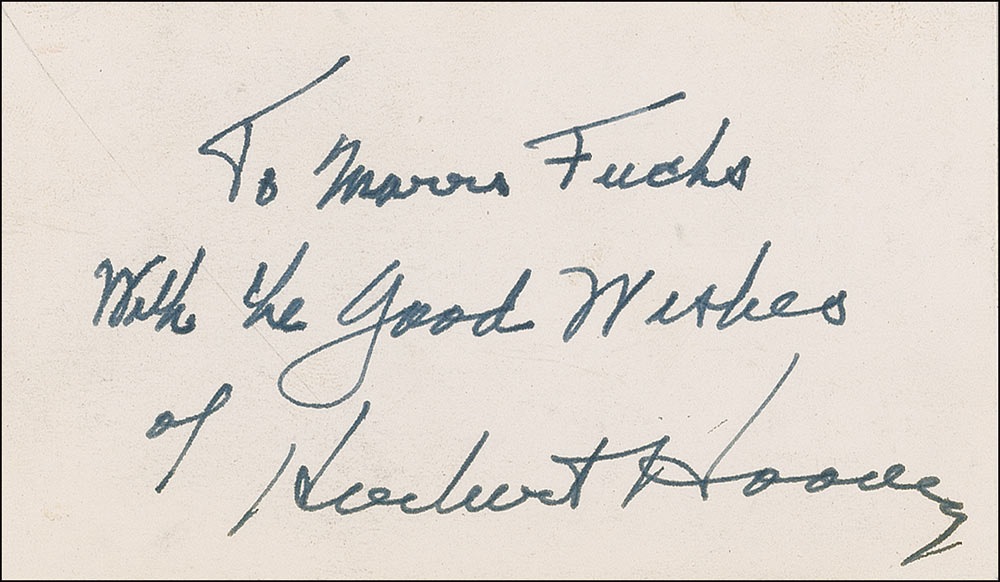 To Morris Fuchs
With the Good Wishes
of Herbert Hoover